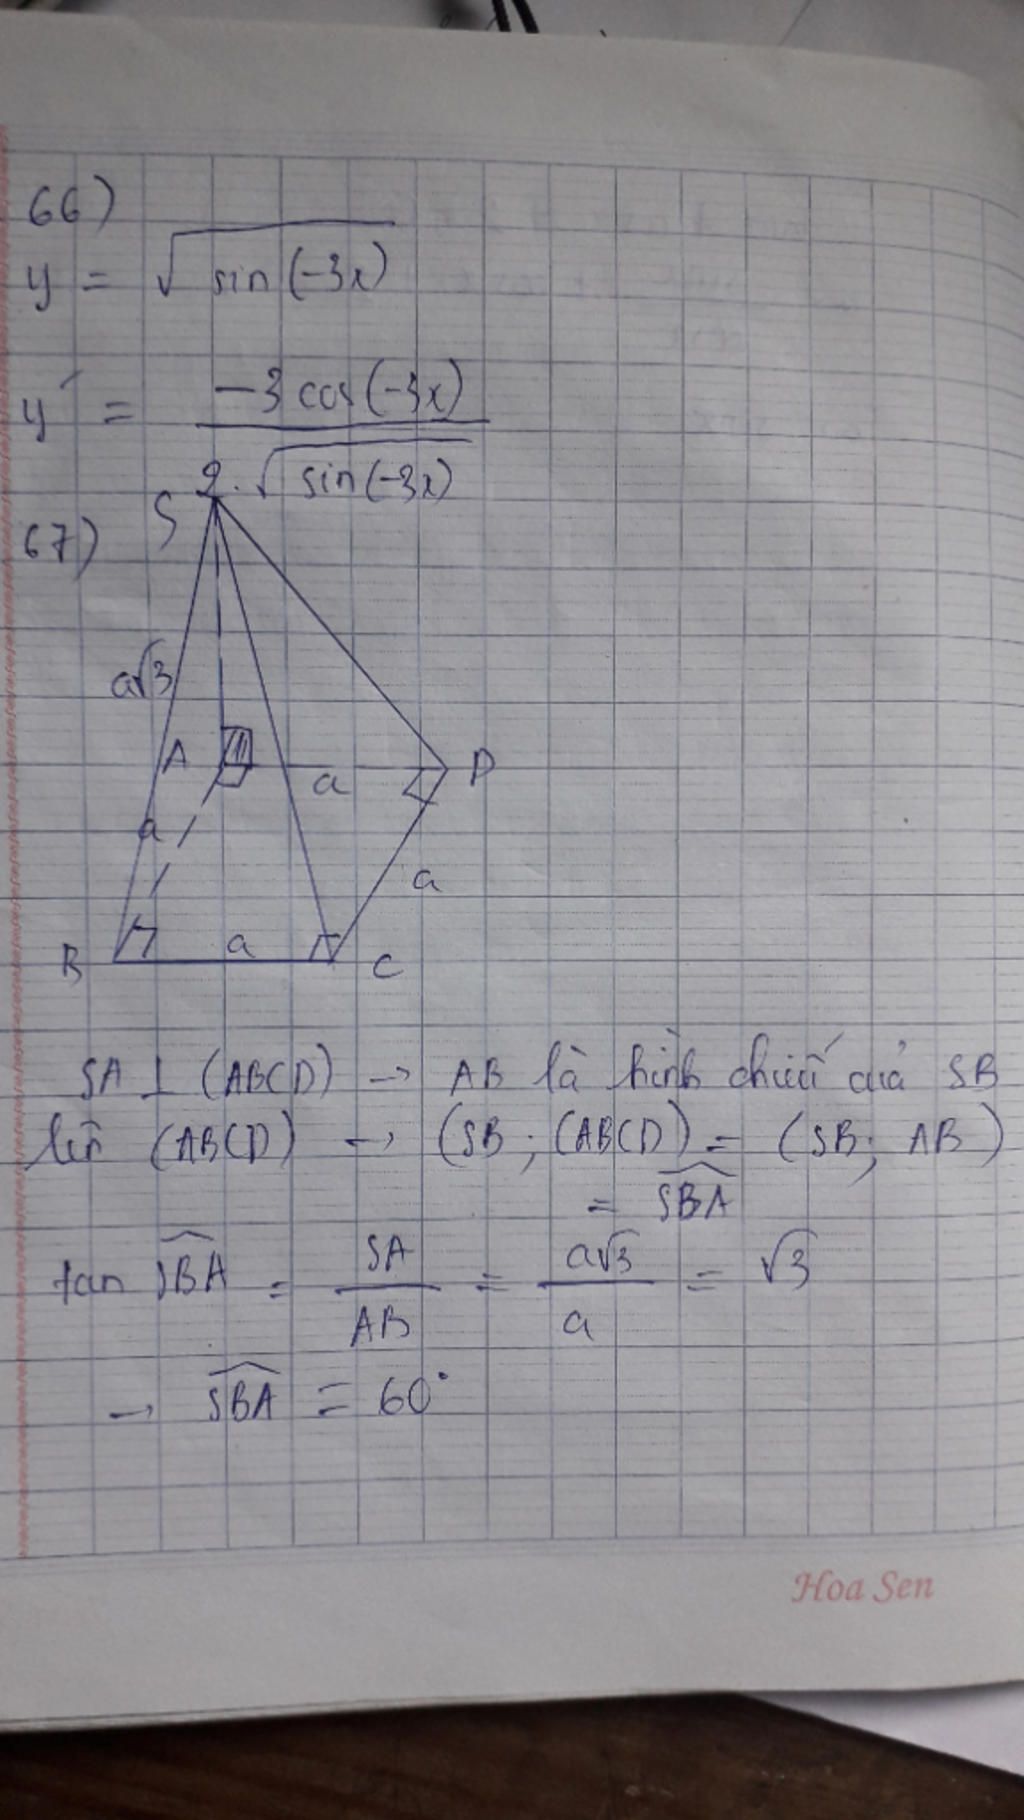 66)
y = √sin(-3x)
y' = -3 cos(-3x)
2.√sin(-3x)
67)
S
a√3
A
a
D
a
a
B
a
C
SA ⊥ (ABCD) → AB là hình chiếu của SB
lên (ABCD) → (SB; (ABCD) = (SB; AB)
= SBA
tan SBA = SA/AB = a√3/a = √3
→ SBA = 60°
Hoa Sen